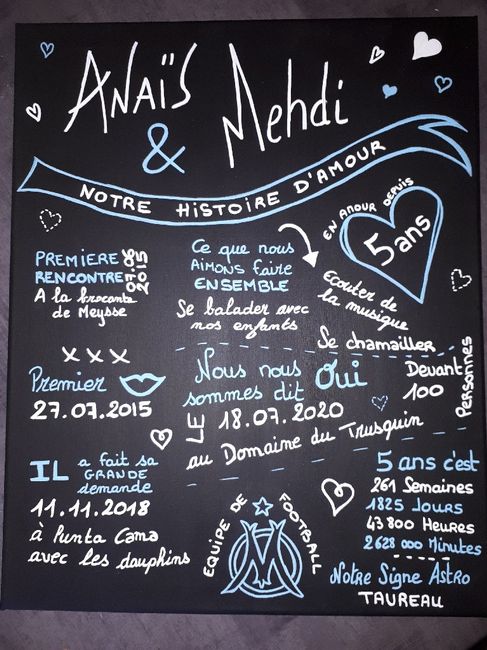 ANAÏS
& Mehdi
NOTRE HISTOIRE D'AMOUR
EN AMOUR DEPUIS
5 ans
PREMIERE
RENCONTRE
A la brocante
de Meysse
Ce que nous
AIMONS faire
ENSEMBLE
Se balader avec
nos enfants
Ecouter de
la musique
Se chamailler
XXX
Premier
27.07.2015
Nous nous
sommes dit Oui
LE 18.07.2020
au Domaine du Trusquin
Devant
100
Personnes
IL a fait sa
GRANDE
demande
11.11.2018
à Punta Cana
avec les dauphins
EQUIPE DE FOOTBALL
M
5 ans c'est
261 Semaines
1825 Jours
43 800 Heures
2628 000 Minutes
Notre Signe Astro
TAUREAU